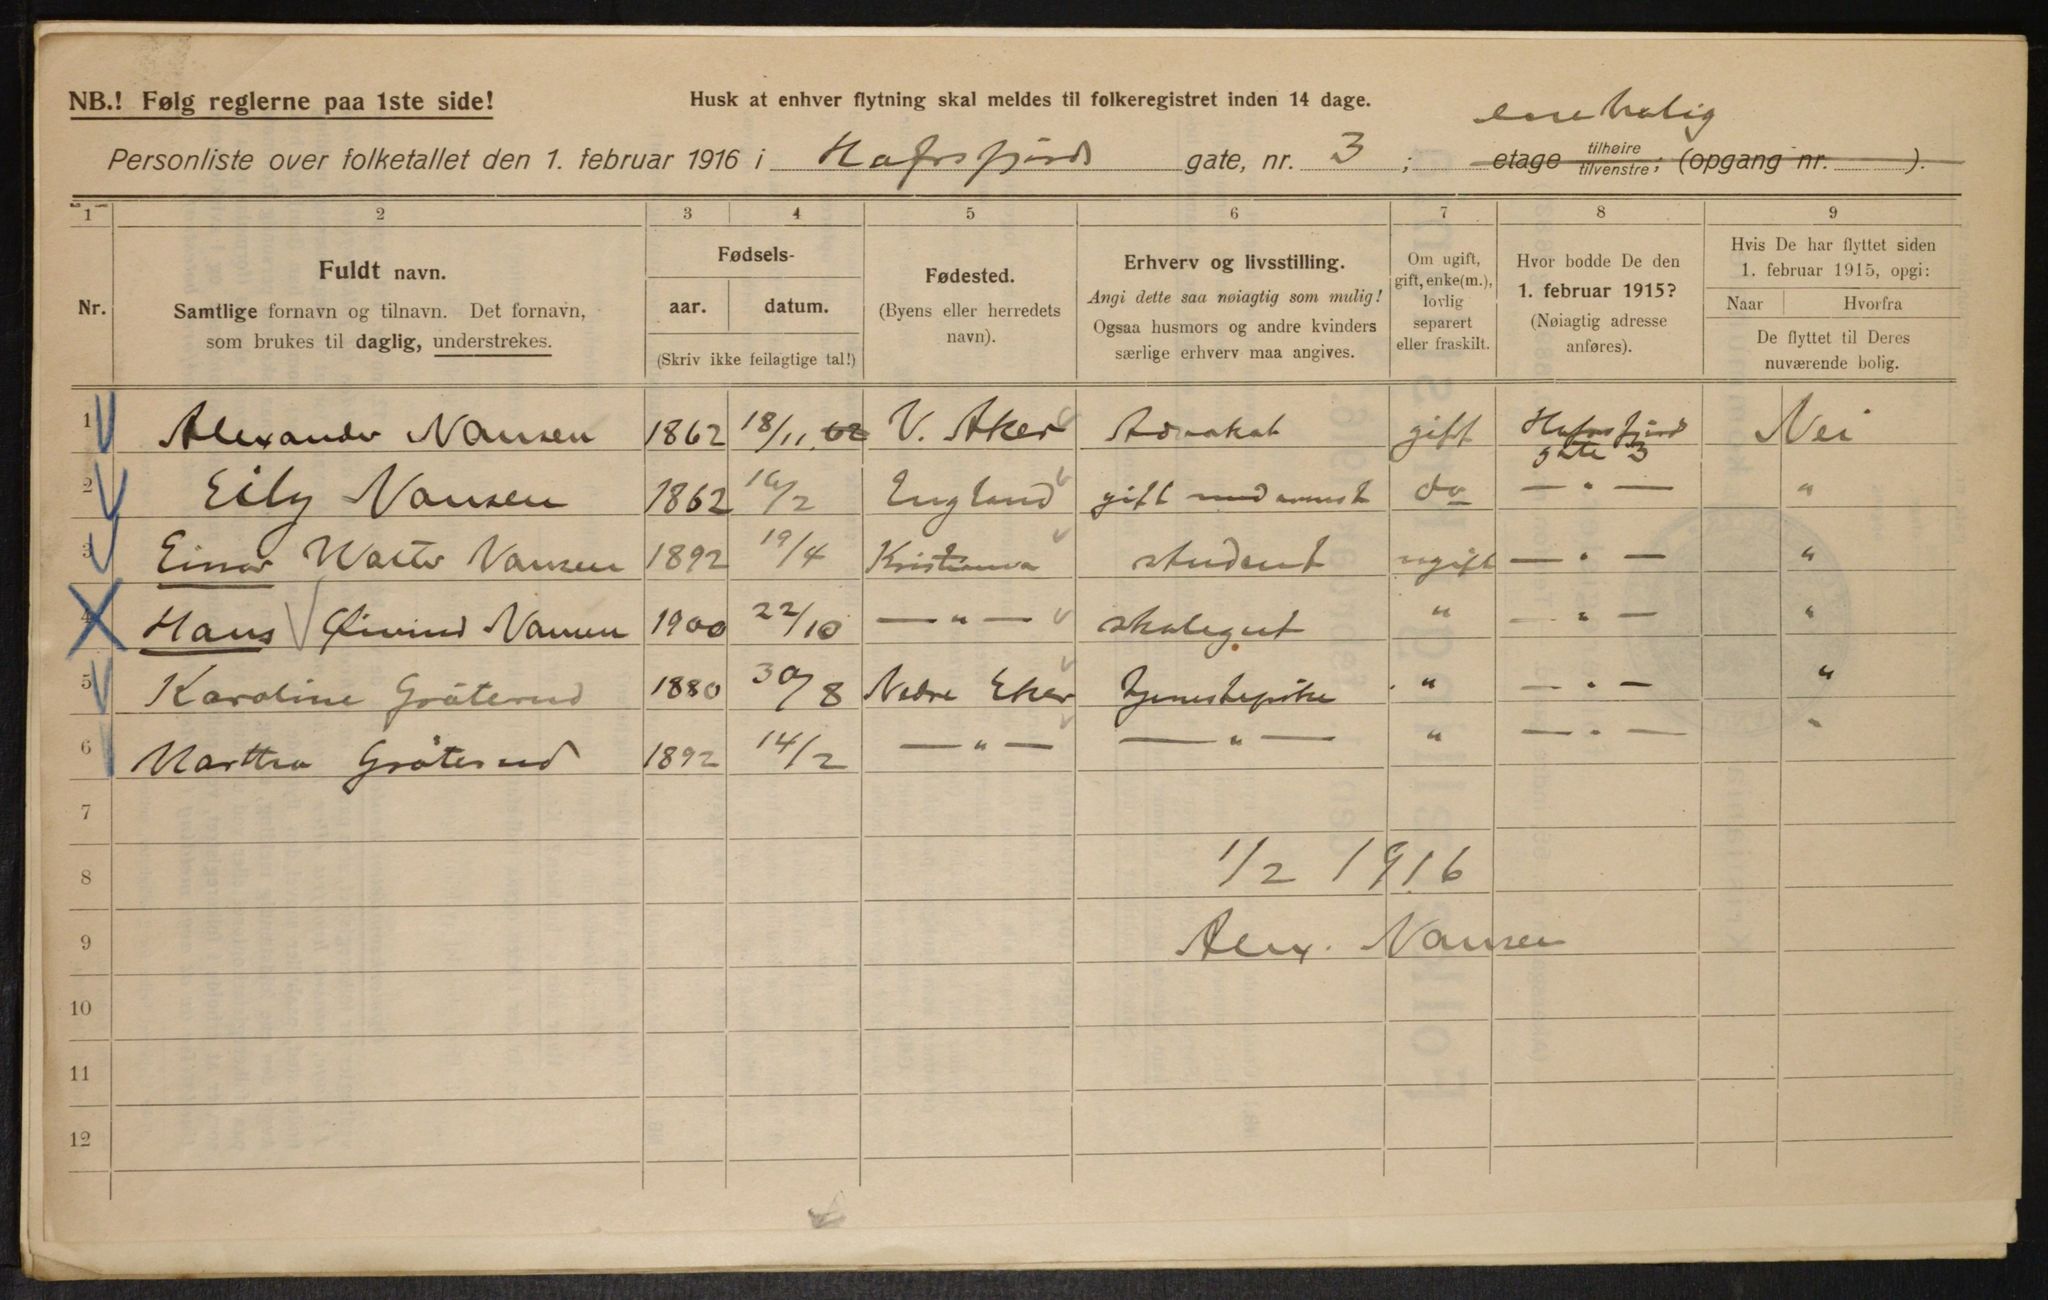 NB.! Følg reglerne paa 1ste side!
Husk at enhver flytning skal meldes til folkeregistret inden 14 dage.
enebolig
Personliste over folketallet den 1. februar 1916 i Hafrsfjords gate, nr. 3 ; etage tilhøire tilvenstre; (opgang nr. ).
1 2 3 4 5 6 7 8 9
Nr.
Fuldt navn.
Samtlige fornavn og tilnavn. Det fornavn,
som brukes til daglig, understrekes.
Fødsels-
aar. datum.
(Skriv ikke feilagtige tal!)
Fødested.
(Byens eller herredets
navn).
Erhverv og livsstilling.
Angi dette saa nøiagtig som mulig!
Ogsaa husmors og andre kvinders
særlige erhverv maa angives.
Om ugift,
gift, enke(m.),
lovlig
separert
eller fraskilt.
Hvor bodde De den
1. februar 1915?
(Nøiagtig adresse
anføres).
Hvis De har flyttet siden
1. februar 1915, opgi:
Naar Hvorfra
De flyttet til Deres
nuværende bolig.
1 Alexander Nansen 1862 18/11 62 V. Aker Advokat gift Hafrsfjords gate 3 Nei
2 Eily Nansen 1862 16/2 England gift med do — " — "
3 Einar Walter Nansen 1892 19/4 Kristiania student ugift — " — "
4 Hans Øivind Nansen 1900 22/10 — " — skolegut " — " — "
5 Karoline Gråterud 1880 30/8 Nedre Eker tjenestepike " — " — "
6 Martha Gråterud 1892 14/2 — " — — " — " — " — "
7
8 1/2 1916
9 Alex. Nansen
10
11
12